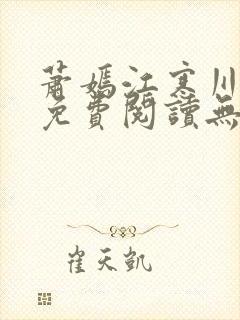 蕭嫣江寒川
免費閱讀無
崔天凱